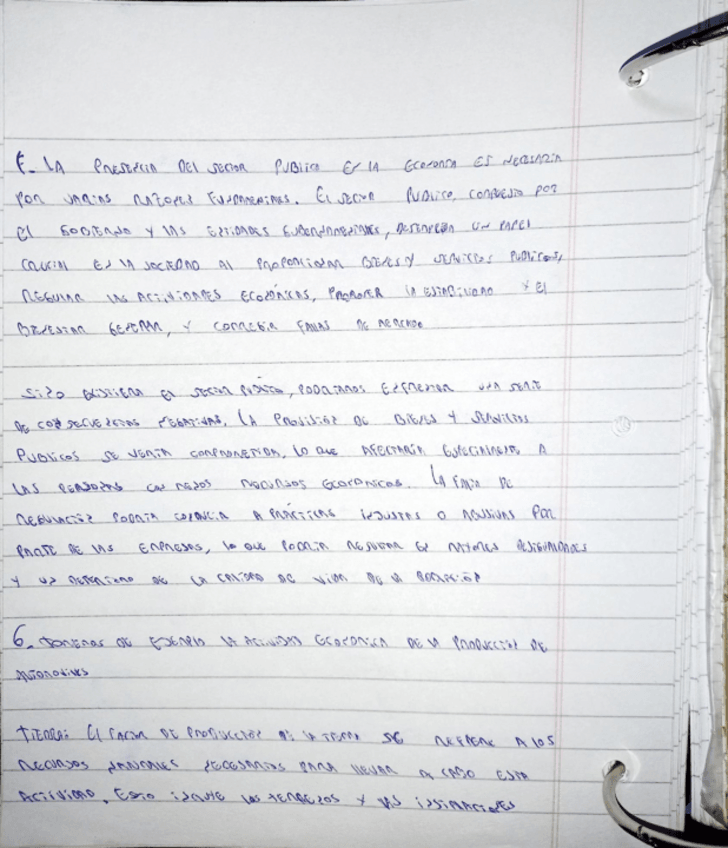 F. LA PRESENCIA DEL SECTOR PUBLICO EN LA ECONOMIA ES NECESARIA
POR VARIAS RAZONES FUNDAMENTALES. El SECTOR PUBLICO, COMPUESTO POR
El GOBIERNO Y LAS ENTIDADES GUBERNAMENTALES, DESEMPEÑA UN PAPEL
CRUCIAL EN LA SOCIEDAD Al PROPORCIONAR BIENES Y SERVICIOS PUBLICOS,
REGULAR LAS ACTIVIDADES ECONÓMICAS, PROMOVER LA ESTABILIDAD Y El
BIENESTAR GENERAL, Y CORREGIR FALLAS DE MERCADO
SI NO EXISTIERA El SECTOR PÚBLICO, PODRIAMOS ENFRENTAR UNA SERIE
DE CONSECUENCIAS NEGATIVAS. LA PROVISION DE BIENES Y SERVICIOS
PUBLICOS SE VERIA COMPROMETIDA, LO QUE AFECTARÍA ESPECIALMENTE A
LAS PERSONAS CON MENOS RECURSOS ECONOMICOS. LA FALTA DE
REGULACION PODRIA CONDUCIR A PRÁCTICAS INJUSTAS O ABUSIVAS POR
PARTE DE LAS EMPRESAS, lo QUE PODRIA RESULTAR EN MAYORES DESIGUALDADES
Y UN DETERIORO DE LA CALIDAD DE VIDA DE LA POBLACION
6. TOMEMOS DE EJEMPLO LA ACTIVIDAD ECONOMICA DE LA PRODUCCION DE
AUTOMOVILES
TIERRA: El FACTOR DE PRODUCCION DE LA TIERRA SE REFIERE A LOS
RECURSOS NATURALES NECESARIOS PARA LLEVAR A CABO ESTA
ACTIVIDAD. ESTO INCLUYE LOS TERRENOS Y LAS INSTALACIONES